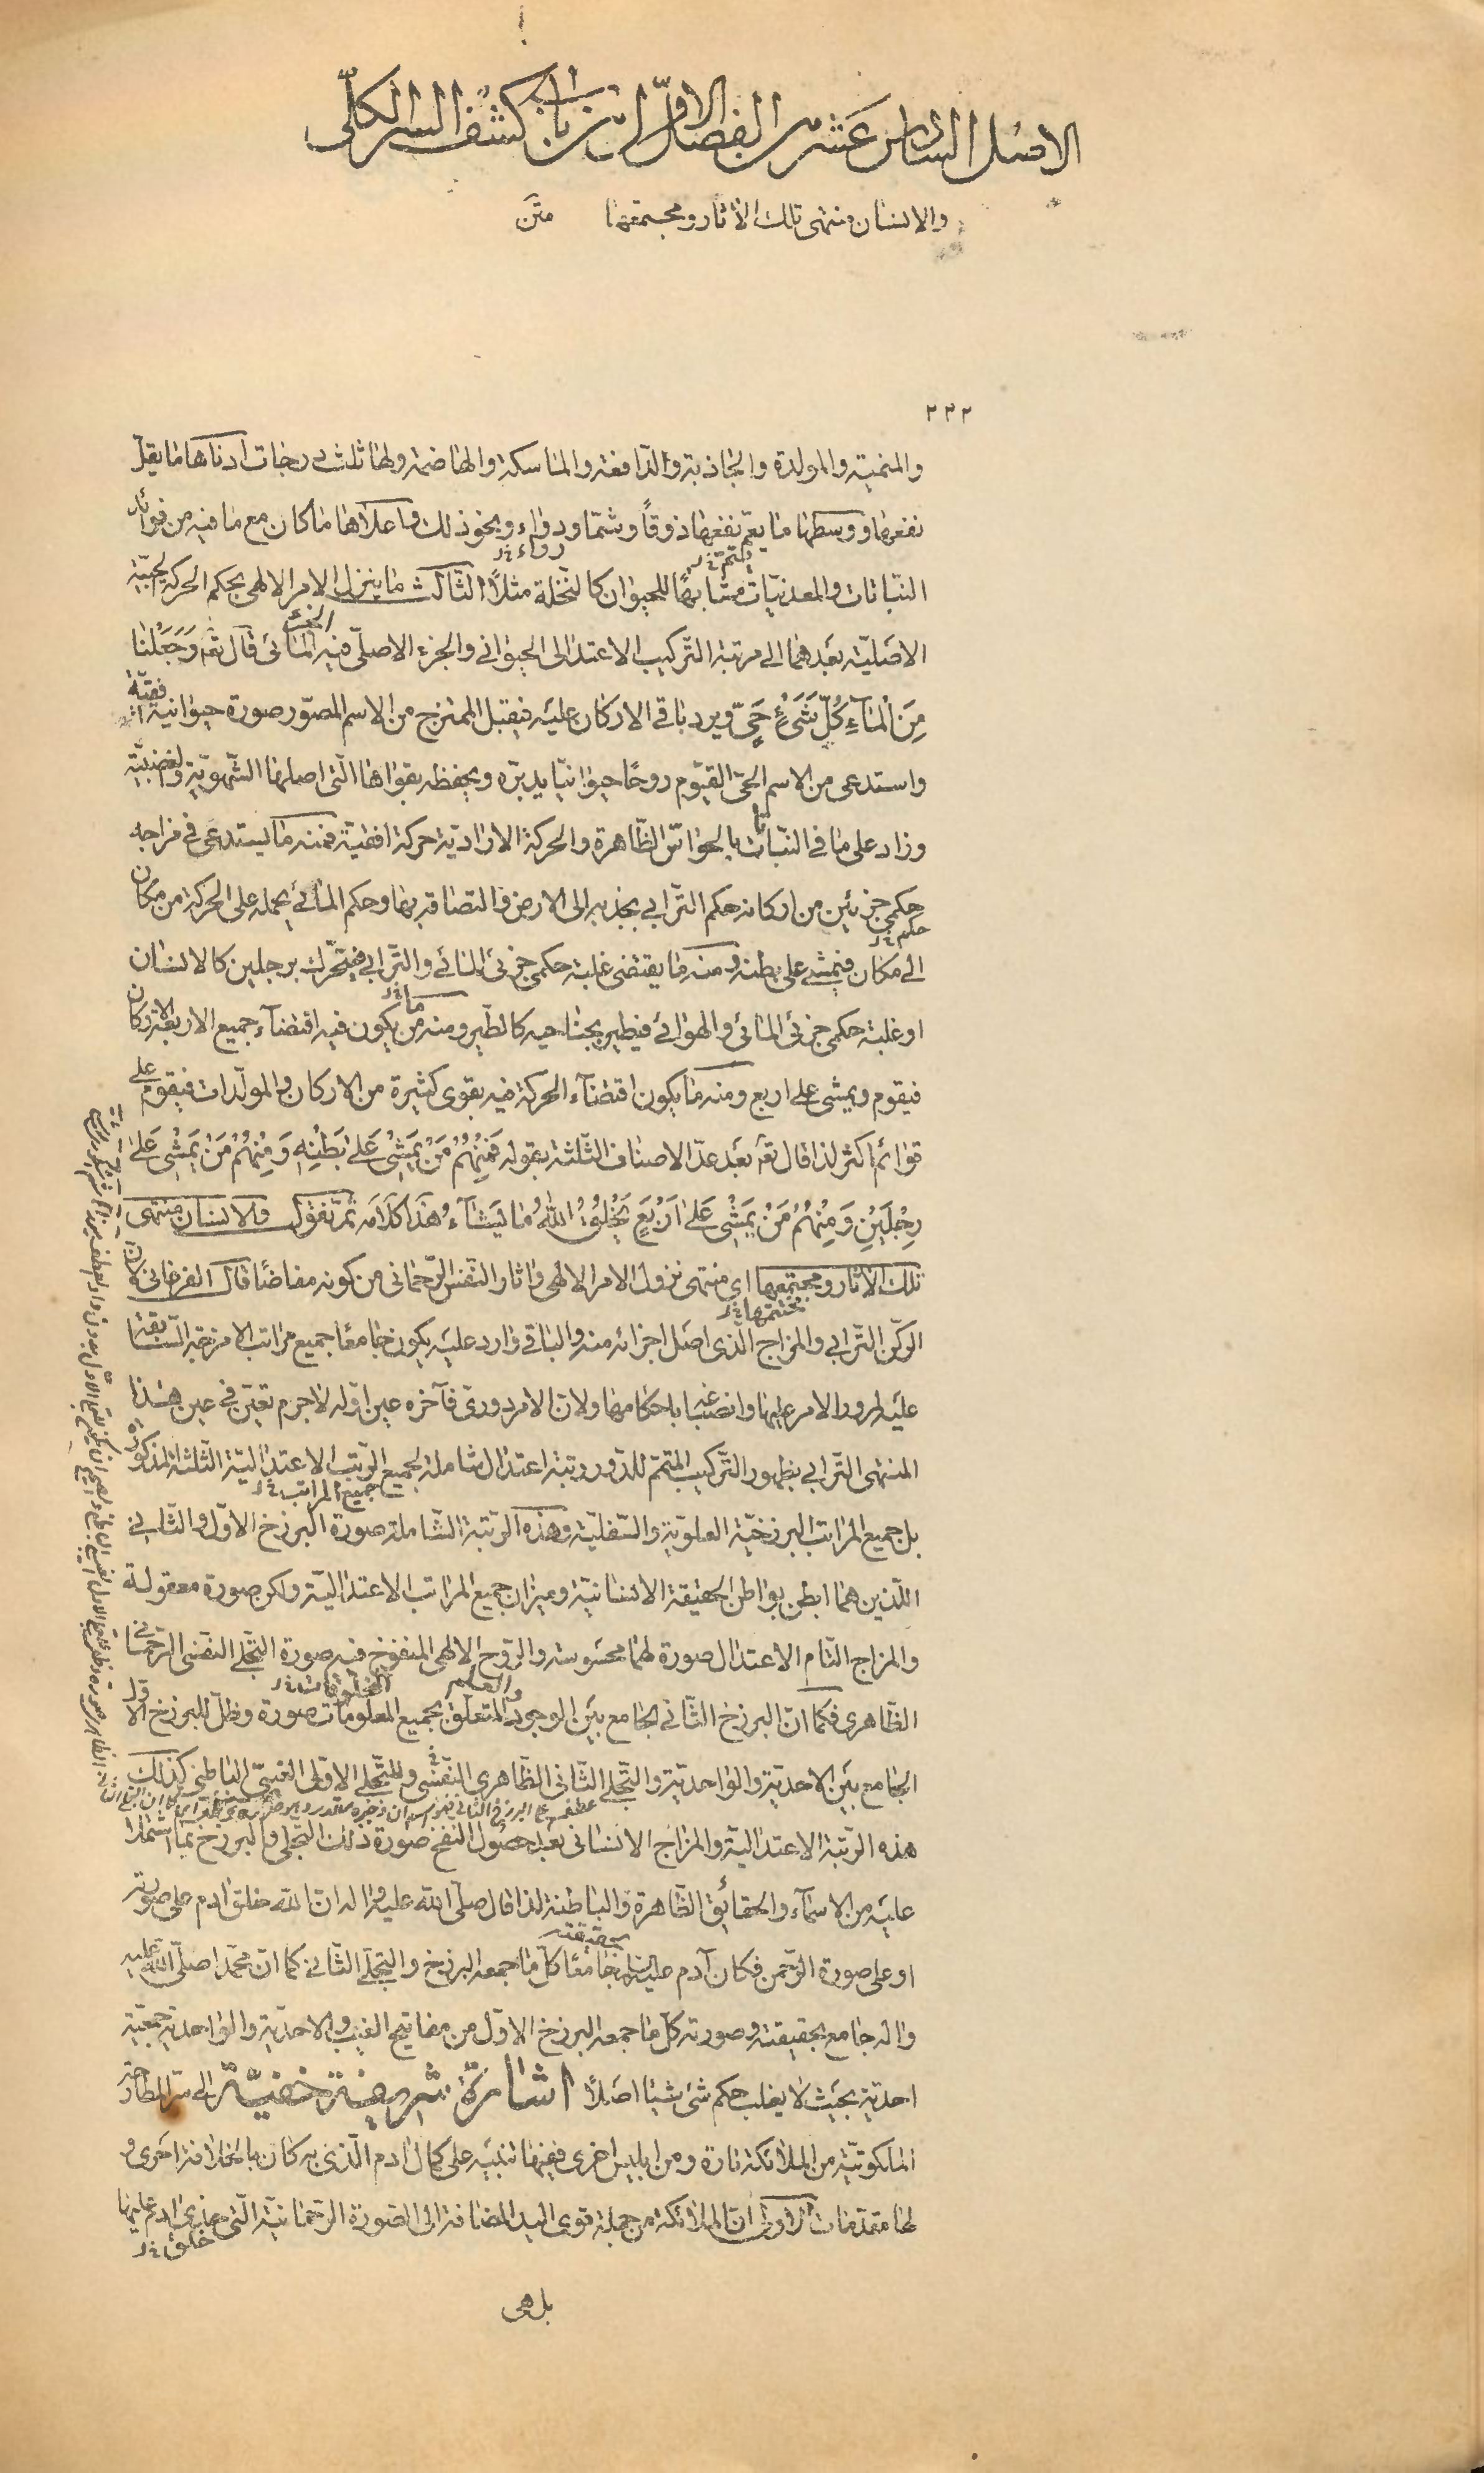 الاصل السادس عشر من الفصل الاول من باب كشف السر الكلى
والانسان منتهى تلك الآثار ومجتمعها متن
٢٣٢
والمنميته والمولدة والجاذبة والدافعة والماسكة والهاضمة ولها ثلث درجات ادناها ما يقل
نفعها ووسطها ما يعم نفعها ذوقاً وشما ودواء ونحو ذلك واعلاها ما كان مع ما فيه من فوائد
رواء
النباتات والمعدنيات مشابهاً للحيوان كالنخلة مثلاً الثالث ما ينزل الامر الالهى بحكم الحركة الحبية
الاصلية بعدهما الى مرتبة التركيب الاعتدالى الحيوانى والجزء الاصلى فيه المائى قال تعه وَجَعَلْنا
مِنَ الْمآءِ كُلَّ شَىْءٍ حَىٍّ ويرد باقى الاركان عليه فيقبل الممتزج من الاسم المصوّر صورة حيوانية
واستدعى من الاسم الحىّ القيّوم روحاً حيوانيّا يدبّره ويحفظه بقواها الّتى اصلها الشّهويّة والغضبيّة
وزاد على ما فى النّبات بالحواسّ الظّاهرة والحركة الاراديّة حركة افقيّة فمنه ما يستدعى فى مزاجه
حكمى جزئين من اركانه حكم التّرابى بجذبه الى الارض والتصاقه بها وحكم المائى بحمله على الحركة من مكان
حكم
الى مكان فيمشى على بطنه ومنه ما يقتضى غلبة حكمى جزئى المائى والتّرابى فيتحرّك برجلين كالانسان
ما
او غلبة حكمى جزئى المائى والهوائى فيطير بجناحيه كالطّير ومنه من يكون فيه اقتضآء جميع الاربعة الاركان
فيقوم ويمشى على اربع ومنه ما يكون اقتضآء الحركة فيه بقوى كثيرة من الاركان والمولّدات فيقوم على
قوائم اكثر لذا قال تعه بعد عدّ الاصناف الثّلثة بقوله فَمِنْهُمْ مَنْ يَمْشى عَلى بَطْنِهِ وَمِنْهُمْ مَنْ يَمْشى عَلى
رِجْلَيْنِ وَمِنْهُمْ مَنْ يَمْشى عَلى اَرْبَعٍ يَخْلُقُ اللّٰهُ ما يَشآءُ هذا كلامه ثمّ نقول والانسان منتهى
تلك الآثار ومجتمعها اى منتهى نزول الامر الالهى واثار النّفس الرّحمانى من كونه مفاضاً قال الفرغانى ان
مختتمها
الركن التّرابى والمزاج الّذى اصل اجزائه منه والباقى وارد عليه يكون جامعاً جميع مراتب الامزجة السّابقة
عليه لمرور الامر عليها وانصباغه باحكامها ولانّ الامر دورى فآخره عين اوّله لاجرم تعيّن فى عين هذا
المنتهى التّرابى بظهور التّركيب المتمّم للدّور رتبة اعتدال شاملة لجميع الرّتب الاعتداليّة الثّلثة المذكورة
جميع المراتب
بل جميع المراتب البرزخيّة العلويّة والسّفليّة وهذه الرّتبة الشّاملة صورة البرزخ الاوّل والثّانى
اللّذين هما ابطن بواطن الحقيقة الانسانيّة وميزان جميع المراتب الاعتداليّة ولكن صورة معقولة
والمزاج التّام الاعتدال صورة لهما محسوسة والرّوح الالهى المنفوخ فيه صورة التّجلّى النّفسى الرّحمانى
الظّاهرى فكما انّ البرزخ الثّانى الجامع بين الوجود والعلم المتعلّق بجميع المعلومات صورة وظلّ للبرزخ الاوّل
الجامع بين الاحديّة والواحديّة والتّجلّى الثّانى الظّاهرى النّفسى وللتّجلّى الاوّلى الغيبىّ الباطنى كذلك
هذه الرّتبة الاعتداليّة والمزاج الانسانى بعد حصول النّفخ صورة ذلك التّجلّى والبرزخ بما اشتملا
عليه من الاسمآء والحقائق الظّاهرة والباطنة لذا قال صلّى اللّه عليه واله انّ اللّه خلق ادم على صورته
بحقيقته
او على صورة الرّحمن فكان آدم عليه السلم جامعاً كلّ ما جمعه البرزخ والتجلّى الثّانى كما انّ محمّدا صلّى اللّه عليه
واله جامع بحقيقته وصورته كلّ ما جمعه البرزخ الاوّل من مفاتيح الغيب والاحديّة والواحديّة جمعيّة
احديّة بحيث لا يغلب حكم شئ شيئا اصلاً اشارة شريفة خفيّة الى سرّ المطاردة
الملكوتيّة من الملائكة تارة ومن ابليس اخرى ففيها تنبيه على كمال ادم الّذى به كان بالخلافة احرى و
لها مقدّمات الاولى انّ الملائكة من جملة قوى اليد المضافة الى الصّورة الرّحمانيّة الّتى حذى ادم عليها
خلق
بل هى